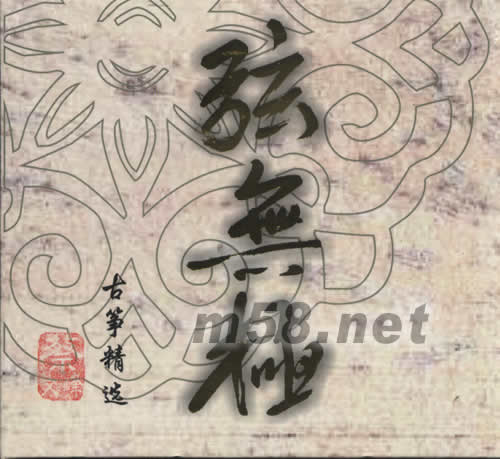 弦無極
古筝精选
m58.net